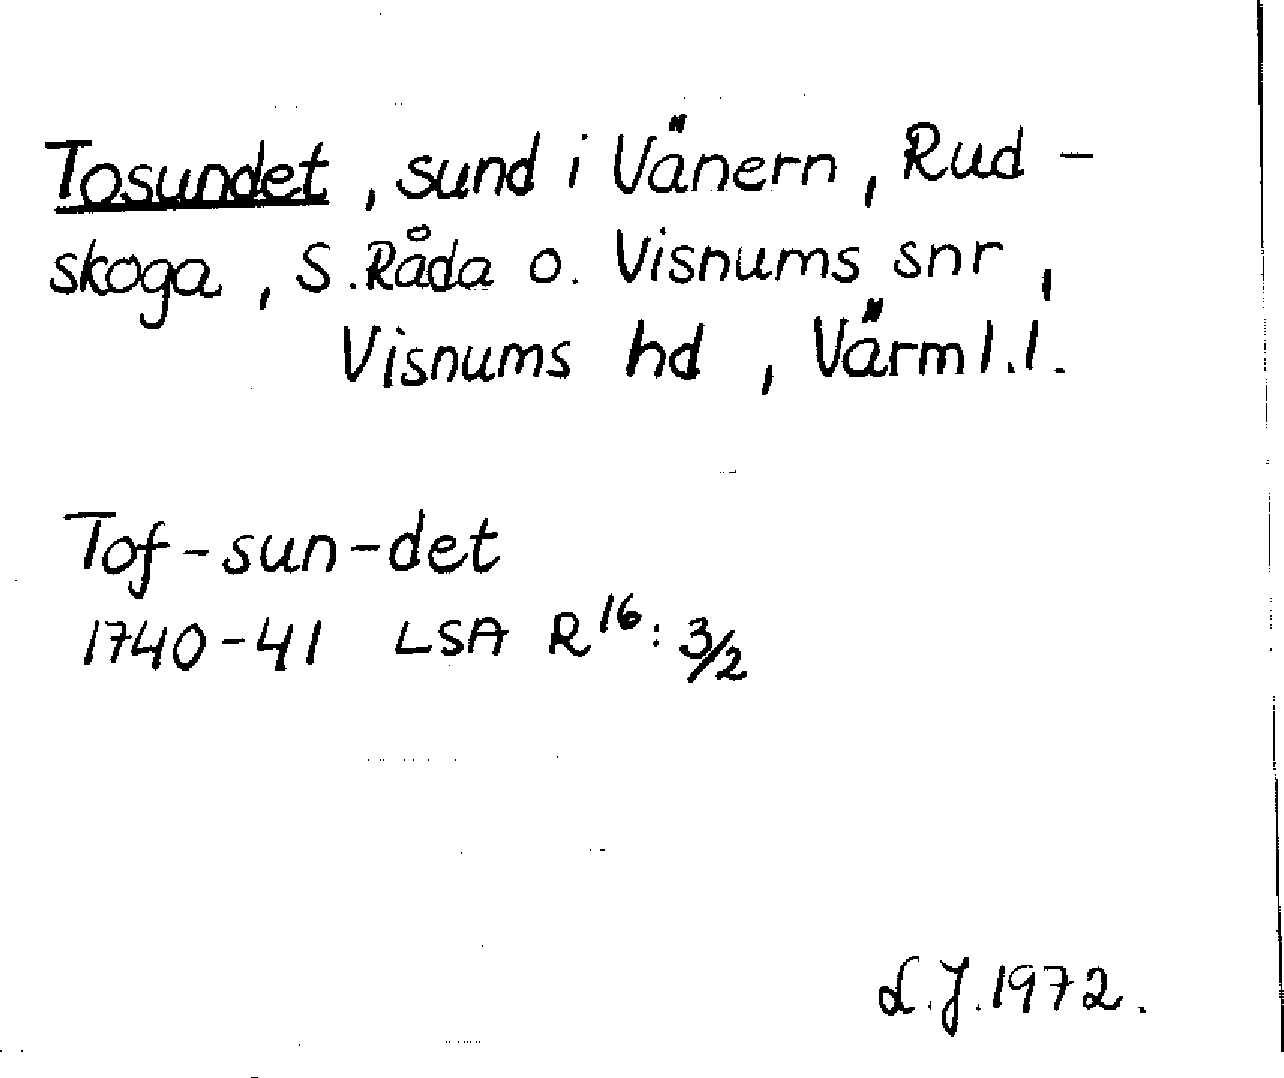 Tosundet, sund i Vänern, Rud-
skoga, S. Råda o. Visnums snr,
Visnums hd, Värml. l.
Tof-sun-det
1740-41 LSA R16: 3/2
L.J. 1972.